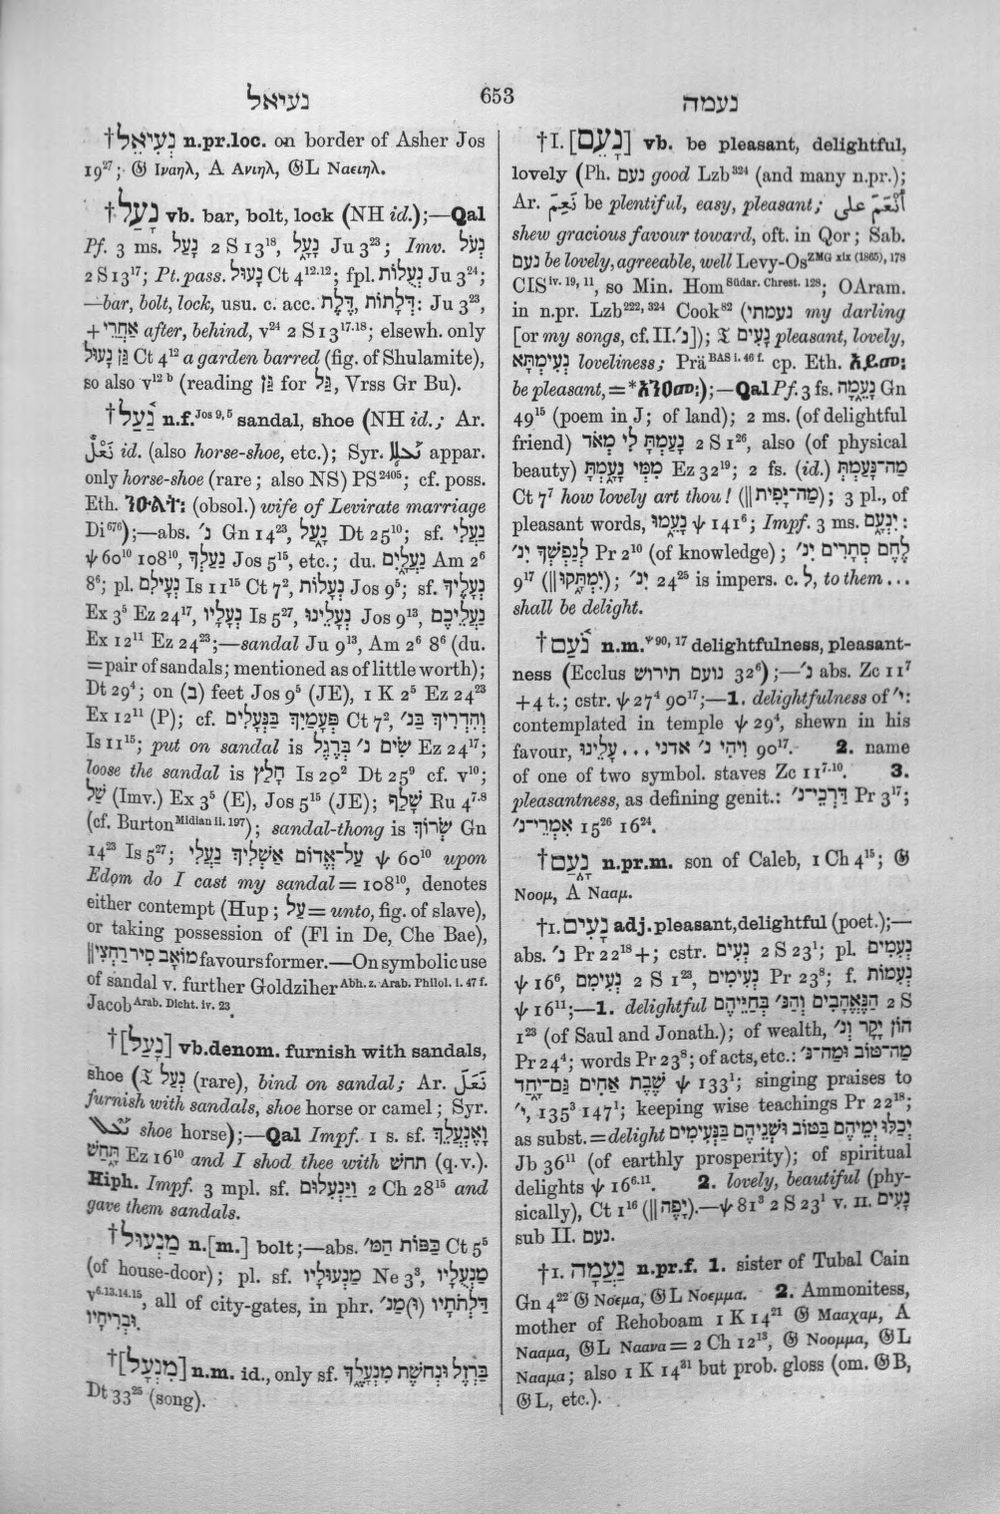 נעיאל
653
נעמה
†נְעִיאֵל n.pr.loc. on border of Asher Jos
19²⁷; 𝔊 Ιναηλ, A Ανιηλ, 𝔊L Ναειηλ.
†נָעַל vb. bar, bolt, lock (NH id.);—Qal
Pf. 3 ms. נָעַל 2 S 13¹⁸, נָעָל Ju 3²³; Imv. נְעֹל
2 S 13¹⁷; Pt.pass. נָעוּל Ct 4¹²·¹²; fpl. נְעֻלוֹת Ju 3²⁴;
—bar, bolt, lock, usu. c. acc. דֶּלֶת, דְּלָתוֹת: Ju 3²³,
+אַחֲרֵי after, behind, v²⁴ 2 S 13¹⁷·¹⁸; elsewh. only
גַּן נָעוּל Ct 4¹² a garden barred (fig. of Shulamite),
so also v¹² ᵇ (reading גַּן for גַּל, Vrss Gr Bu).
†נַ֫עַל n.f. Jos 9, 5 sandal, shoe (NH id.; Ar.
نَعْلٌ id. (also horse-shoe, etc.); Syr. appar.
only horse-shoe (rare; also NS) PS²⁴⁰⁵; cf. poss.
Eth. (obsol.) wife of Levirate marriage
Di⁶⁷⁶);—abs. נ׳ Gn 14²³, נָעַל Dt 25¹⁰; sf. נַעֲלִי
ψ 60¹⁰ 108¹⁰, נַעַלְךָ Jos 5¹⁵, etc.; du. נַעֲלָיִם Am 2⁶
8⁶; pl. נְעָלִים Is 11¹⁵ Ct 7², נְעָלוֹת Jos 9⁵; sf. נְעָלֶיךָ
Ex 3⁵ Ez 24¹⁷, נְעָלָיו Is 5²⁷, נְעָלֵינוּ Jos 9¹³, נַעֲלֵיכֶם
Ex 12¹¹ Ez 24²³;—sandal Ju 9¹³, Am 2⁶ 8⁶ (du.
=pair of sandals; mentioned as of little worth);
Dt 29⁴; on (בְּ) feet Jos 9⁵ (JE), 1 K 2⁵ Ez 24²³
Ex 12¹¹ (P); cf. פְּעָמַיִךְ בַּנְּעָלִים Ct 7², וְהִדְרִיךְ בַּנ׳
Is 11¹⁵; put on sandal is שִׂים נ׳ בְּרֶגֶל Ez 24¹⁷;
loose the sandal is חָלַץ Is 20² Dt 25⁹ cf. v¹⁰;
שַׁל (Imv.) Ex 3⁵ (E), Jos 5¹⁵ (JE); שָׁלַף Ru 4⁷·⁸
(cf. Burton Midian ii. 197); sandal-thong is שְׂרוֹךְ Gn
14²³ Is 5²⁷; עַל־אֱדוֹם אַשְׁלִיךְ נַעֲלִי ψ 60¹⁰ upon
Edom do I cast my sandal = 108¹⁰, denotes
either contempt (Hup; עַל = unto, fig. of slave),
or taking possession of (Fl in De, Che Bae),
‖מוֹאָב סִיר רַחְצִי favours former.—On symbolic use
of sandal v. further Goldziher Abh. z. Arab. Philol. i. 47 f.
Jacob Arab. Dicht. iv. 23.
†[נָעַל] vb.denom. furnish with sandals,
shoe (𝔗 נְעַל (rare), bind on sandal; Ar. نَعَلَ
furnish with sandals, shoe horse or camel; Syr.
shoe horse);—Qal Impf. 1 s. sf. וָאֶנְעֲלֵךְ
תַּחַשׁ Ez 16¹⁰ and I shod thee with תחש (q.v.).
Hiph. Impf. 3 mpl. sf. וַיַּנְעִלוּם 2 Ch 28¹⁵ and
gave them sandals.
†מַנְעוּל n.[m.] bolt;—abs. כַּפּוֹת הַמּ׳ Ct 5⁵
(of house-door); pl. sf. מַנְעוּלָיו Ne 3³, מַנְעֻלָיו
v⁶·¹³·¹⁴·¹⁵, all of city-gates, in phr. דַּלְתֹתָיו (וּ)מַנ׳
וּבְרִיחָיו.
†[מִנְעָל] n.m. id., only sf. בַּרְזֶל וּנְחֹשֶׁת מִנְעָלֶךָ
Dt 33²⁵ (song).
†I. [נָעֵם] vb. be pleasant, delightful,
lovely (Ph. נעם good Lzb³²⁴ (and many n.pr.);
Ar. نَعِمَ be plentiful, easy, pleasant; أَنْعَمَ على
shew gracious favour toward, oft. in Qor; Sab.
נעם be lovely, agreeable, well Levy-Os ZMG xix (1865), 178
CIS iv. 19, 11, so Min. Hom Südar. Chrest. 128; OAram.
in n.pr. Lzb²²²,³²⁴ Cook⁸² (נעמתי my darling
[or my songs, cf. II. נ׳]); 𝔗 נְעִים pleasant, lovely,
נְעִימְתָא loveliness; Prä BAS i. 46 f. cp. Eth.
be pleasant, =*);—Qal Pf. 3 fs. נָעֵמָה Gn
49¹⁵ (poem in J; of land); 2 ms. (of delightful
friend) נָעַמְתָּ לִּי מְאֹד 2 S 1²⁶, also (of physical
beauty) מִמִּי נָעָמְתָּ Ez 32¹⁹; 2 fs. (id.) מַה־נָּעַמְתְּ
Ct 7⁷ how lovely art thou! (‖מַה־יָּפִית); 3 pl., of
pleasant words, נָעֵמוּ ψ 141⁶; Impf. 3 ms. יִנְעָם:
לְנַפְשְׁךָ יִנ׳ Pr 2¹⁰ (of knowledge); לֶחֶם סְתָרִים יִנ׳
9¹⁷ (‖יִמְתָּקוּ); יִנ׳ 24²⁵ is impers. c. לְ, to them ...
shall be delight.
†נֹ֫עַם n.m. ψ 90, 17 delightfulness, pleasant-
ness (Ecclus נועם תירוש 32⁶);—נ׳ abs. Zc 11⁷
+4 t.; cstr. ψ 27⁴ 90¹⁷;—1. delightfulness of י׳:
contemplated in temple ψ 29⁴, shewn in his
favour, וִיהִי נ׳ אדני ... עָלֵינוּ 90¹⁷. 2. name
of one of two symbol. staves Zc 11⁷·¹⁰. 3.
pleasantness, as defining genit.: דַּרְכֵי־נ׳ Pr 3¹⁷;
אִמְרֵי־נ׳ 15²⁶ 16²⁴.
†נַעַם n.pr.m. son of Caleb, 1 Ch 4¹⁵; 𝔊
Νοομ, A Νααμ.
†I. נָעִים adj. pleasant, delightful (poet.);—
abs. נ׳ Pr 22¹⁸+; cstr. נְעִים 2 S 23¹; pl. נְעִמִים
ψ 16⁶, נְעִימִם 2 S 1²³, נְעִימִים Pr 23⁸; f. נְעִמוֹת
ψ 16¹¹;—1. delightful הַנֶּאֱהָבִים וְהַנּ׳ בְּחַיֵּיהֶם 2 S
1²³ (of Saul and Jonath.); of wealth, הוֹן יָקָר וְנ׳
Pr 24⁴; words Pr 23⁸; of acts, etc.: מַה־טּוֹב וּמַה־נּ׳
שֶׁבֶת אַחִים גַּם־יָחַד ψ 133¹; singing praises to
י׳, 135³ 147¹; keeping wise teachings Pr 22¹⁸;
as subst. = delight יְכַלּוּ יְמֵיהֶם בַּטּוֹב וּשְׁנֵיהֶם בַּנְּעִימִים
Jb 36¹¹ (of earthly prosperity); of spiritual
delights ψ 16⁶·¹¹. 2. lovely, beautiful (phy-
sically), Ct 1¹⁶ (‖יָפֶה).—ψ 81³ 2 S 23¹ v. II. נָעִים
sub II. נעם.
†I. נַעֲמָה n.pr.f. 1. sister of Tubal Cain
Gn 4²² 𝔊 Νοεμα, 𝔊L Νοεμμα. 2. Ammonitess,
mother of Rehoboam 1 K 14²¹ 𝔊 Μααχαμ, A
Νααμα, 𝔊L Νααva = 2 Ch 12¹³, 𝔊 Νοομμα, 𝔊L
Νααμα; also 1 K 14³¹ but prob. gloss (om. 𝔊B,
𝔊L, etc.).